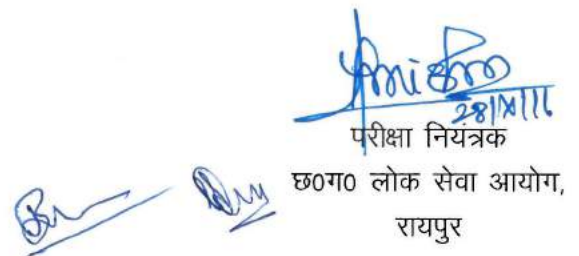 28/XI/16
परीक्षा नियंत्रक
छ०ग० लोक सेवा आयोग,
रायपुर